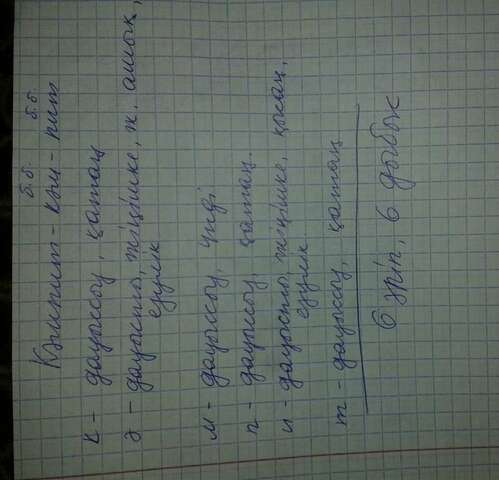 б.б. б.б.
Кәмпит - кәм - пит
К - дауыссыз, қатаң
ә - дауысты, жіңішке, ж. ашық,
езулік
м - дауыссыз, үнді
п - дауыссыз, қатаң.
и - дауысты, жіңішке, қысаң,
езулік
т - дауыссыз, қатаң
6 әріп, 6 дыбыс